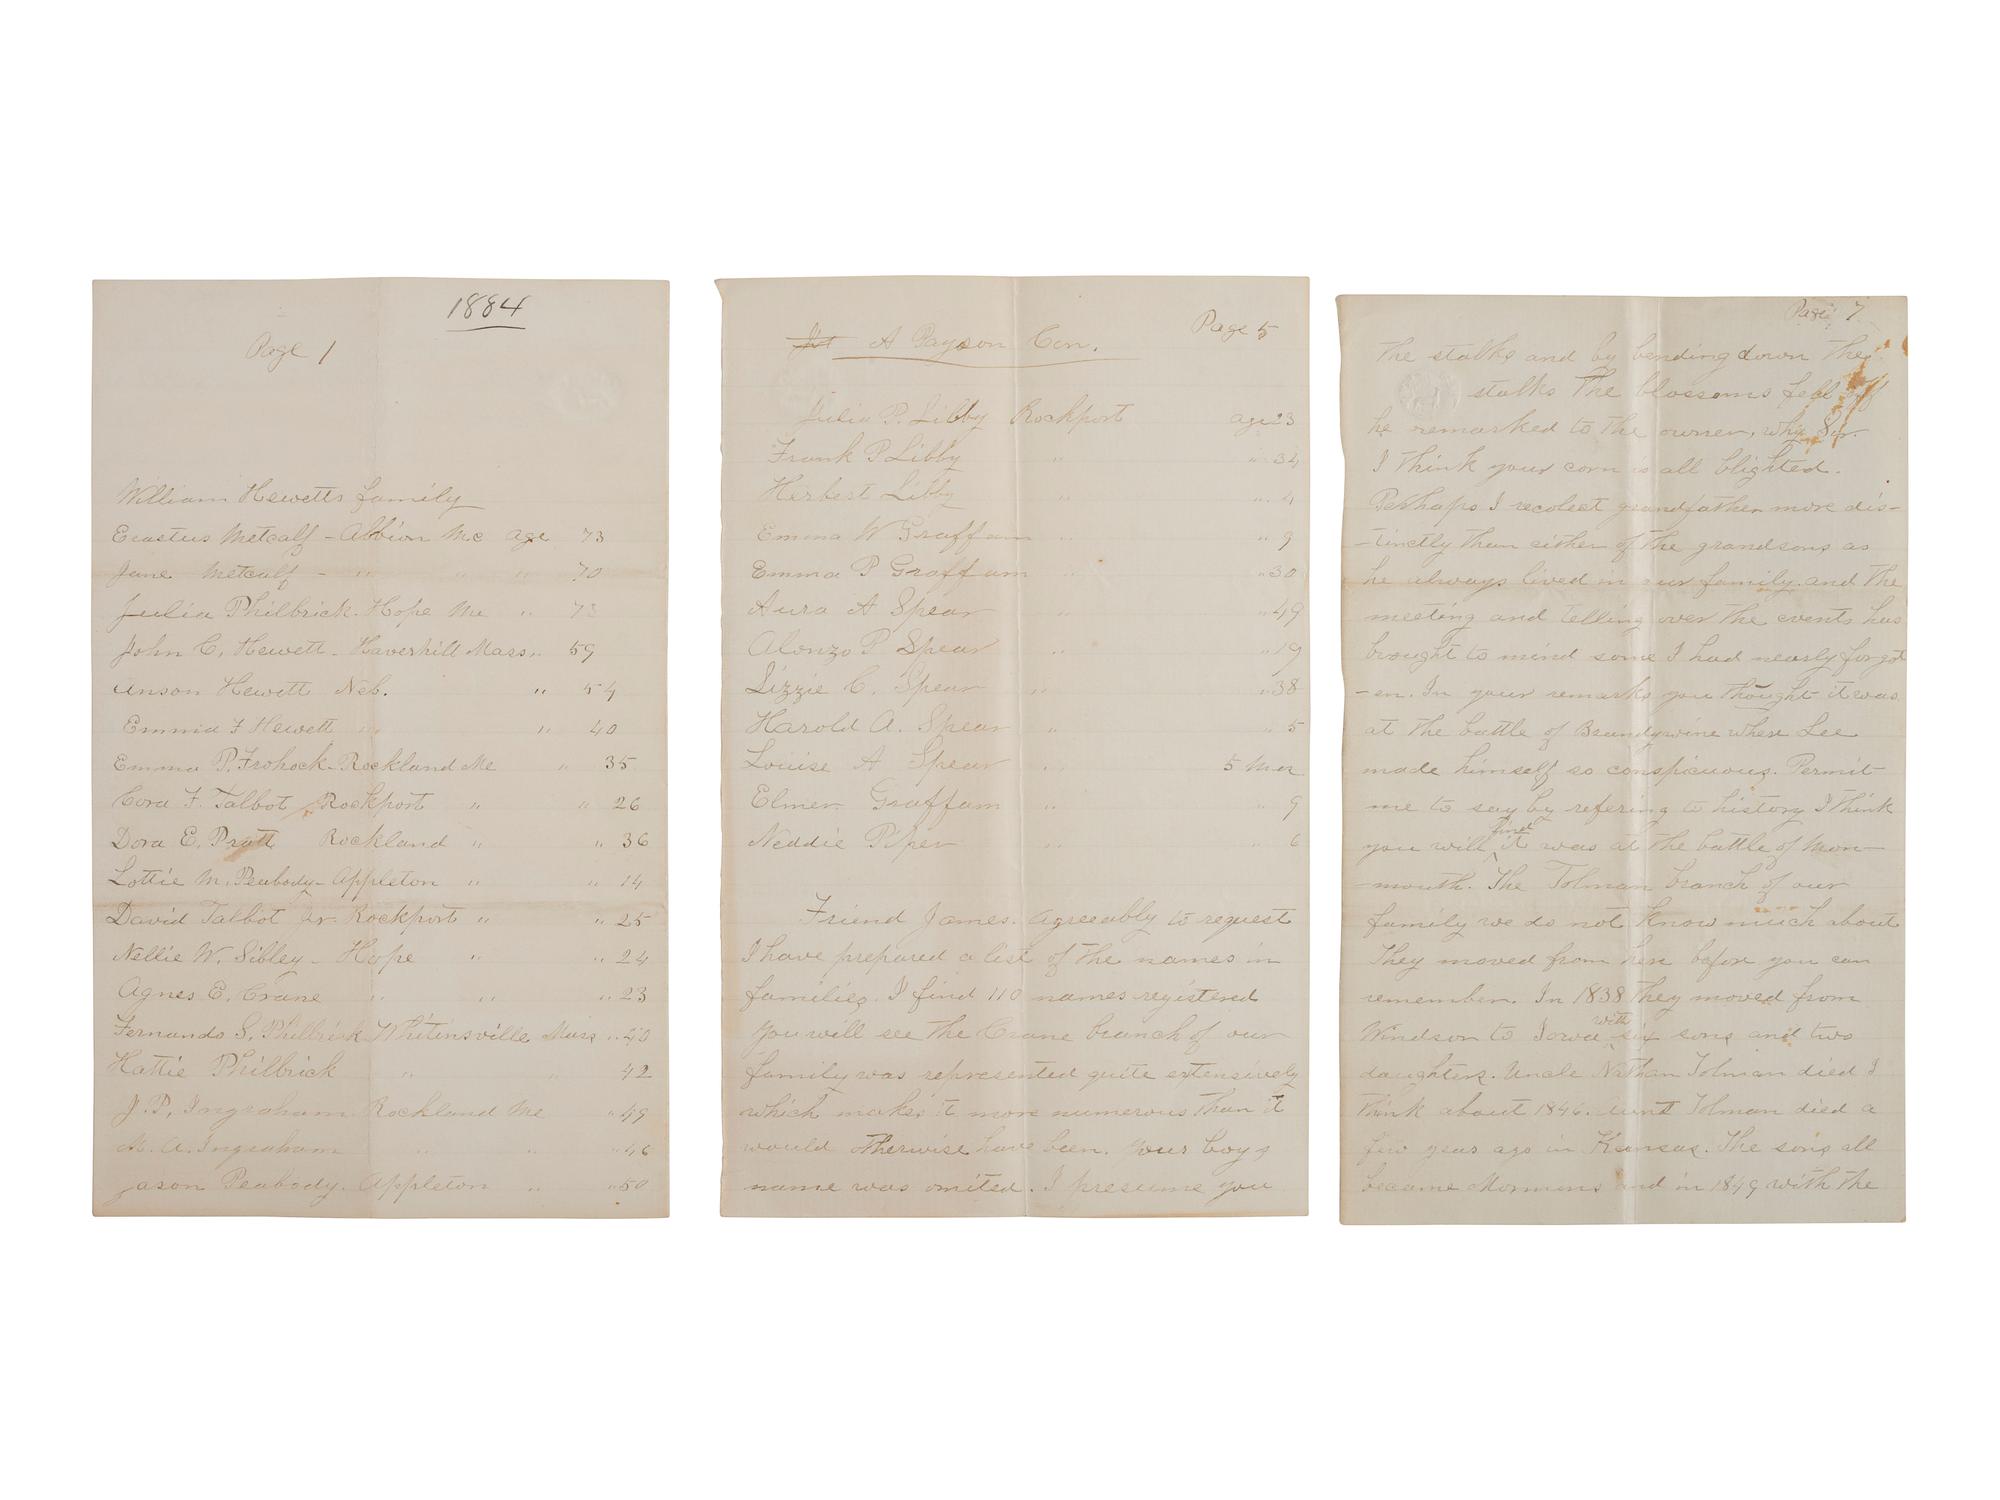 1884
Page 1
William Hewetts family
Erastus Metcalf - Albion Me age 73
Jane Metcalf - " " " 70
Julia Philbrick. Hope Me " 73
John C. Hewett - Haverhill Mass. " 59
unson Hewett Neb. " 54
Emmia F Hewett " " 40
Emma P. Frohock - Rockland Me " 35
Cora F. Talbot Rockport " " 26
Dora E. Pratt Rockland " " 36
Lottie M. Peabody - Appleton " " 14
David Talbot Jr. Rockport " " 25
Nellie W. Sibley - Hope " " 24
Agnes E. Crane " " " 23
Fernando S. Philbrick Whitinsville Mass " 40
Hattie Philbrick " " 42
J. P. Ingraham Rockland Me " 49
M. A. Ingraham " " " 46
Jason Peabody. Appleton " " 50
Page 5
A Payson Con.
Julia P. Libby Rockport age 23
Frank P Libby " " 34
Herbert Libby " " 4
Emma W Graffam " " 9
Emma P Graffam " " 30
Aura A Spear " " 49
Alonzo P Spear " " 19
Lizzie C. Spear " " 38
Harold A. Spear " " 5
Louise A Spear " 5 mos
Elmer Graffam " " 9
Neddie Piper " " 6
Friend James. Agreeably to request
I have prepared a list of the names in
families. I find 110 names registered
You will see the Crane branch of our
family was represented quite extensively
which makes it more numerous than it
would otherwise have been. Your boys
name was omited. I presume you
Page 7
The stalks and by bending down the
stalks the blossoms fell off
he remarked to the owner, why Sir.
I think your corn is all blighted.
Perhaps I recolect grandfather more dis-
-tinctly than either of the grandsons as
he always lived in our family. and the
meeting and telling over the events has
brought to mind some I had nearly forgot
-en. In your remarks you thought it was
at the battle of Brandywine where Lee
made himself so conspicuous. Permit
me to say by refering to history I think
you will find it was at the battle of Mon-
-mouth. The Tolman branch of our
family we do not know much about
They moved from here before you can
remember. In 1838 they moved from
Windsor to Iowa with six sons and two
daughters. Uncle Nathan Tolman died I
think about 1846. Aunt Tolman died a
few years ago in Kansas. The sons all
became Mormons and in 1849 with the